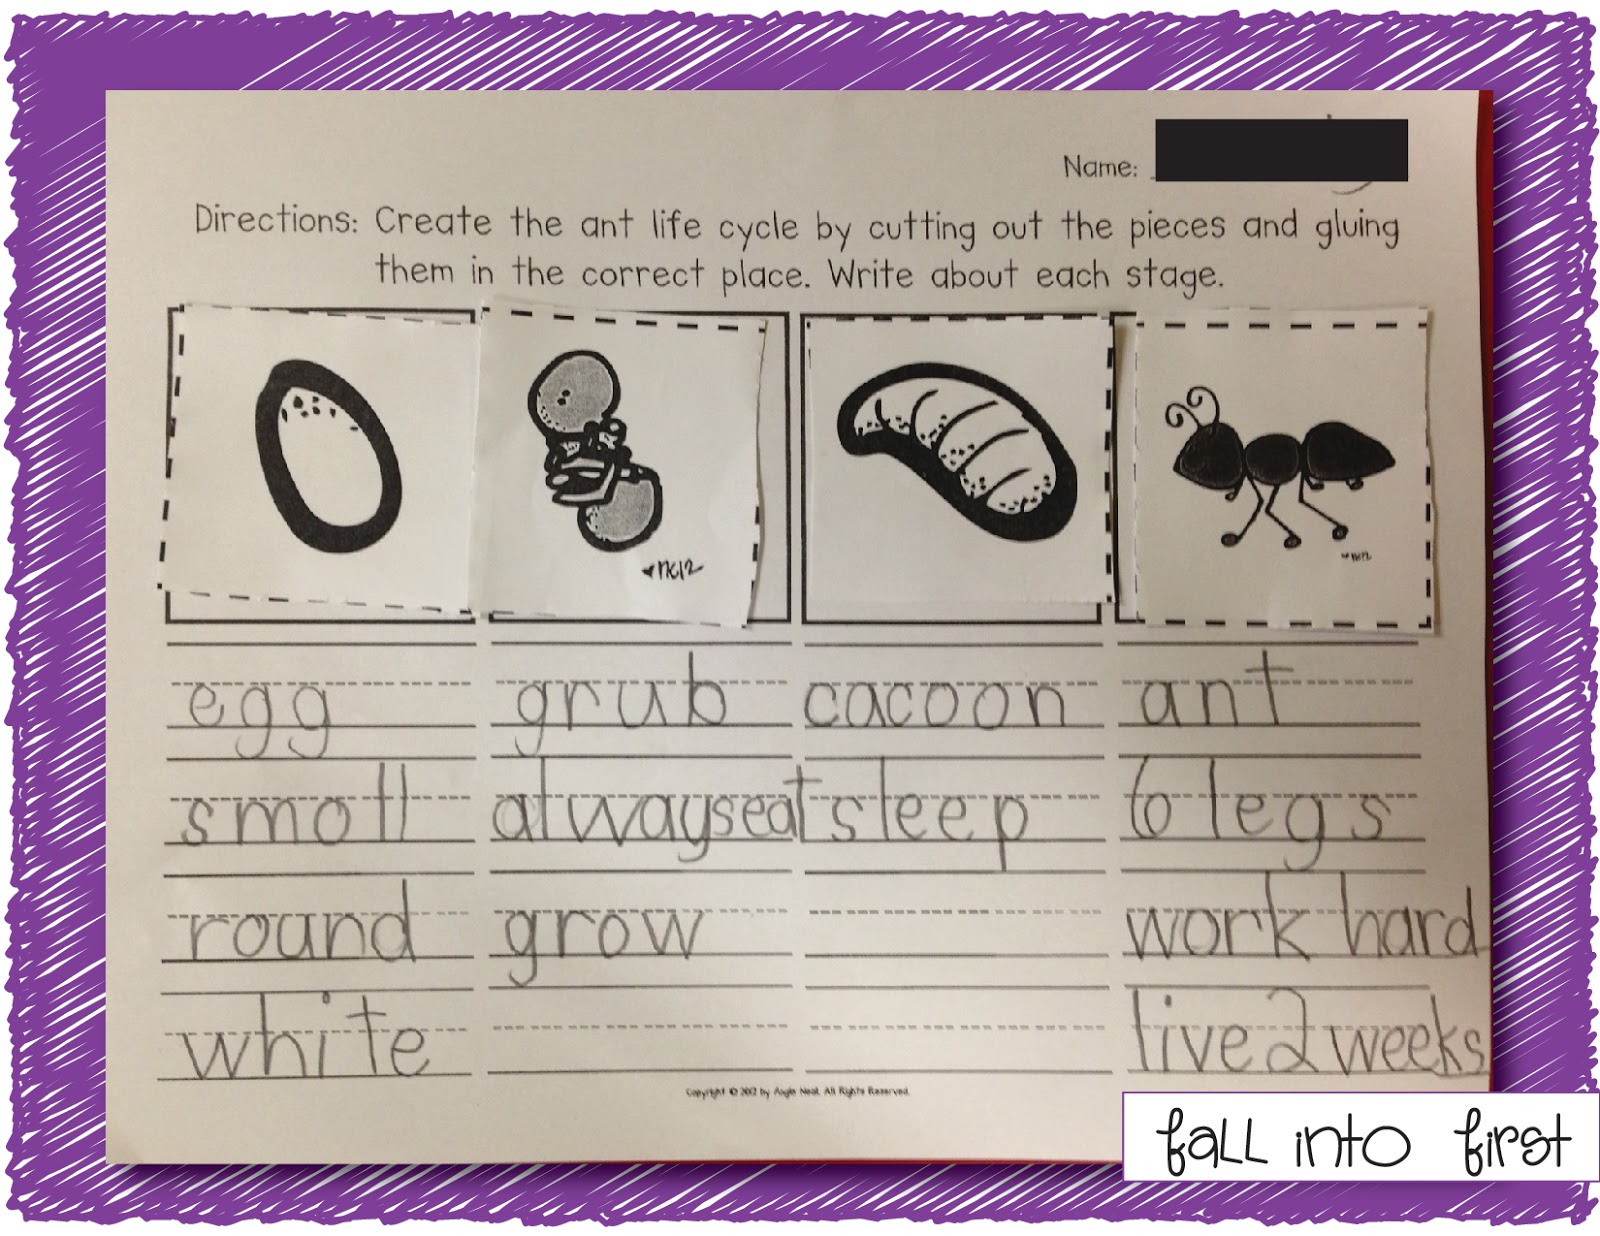 Name:
Directions: Create the ant life cycle by cutting out the pieces and gluing
them in the correct place. Write about each stage.
♥nc12
♥nc12
egg grub cacoon ant
small always eat sleep 6 legs
round grow work hard
white live 2 weeks
Copyright © 2012 by Angie Neal. All Rights Reserved.
fall into first